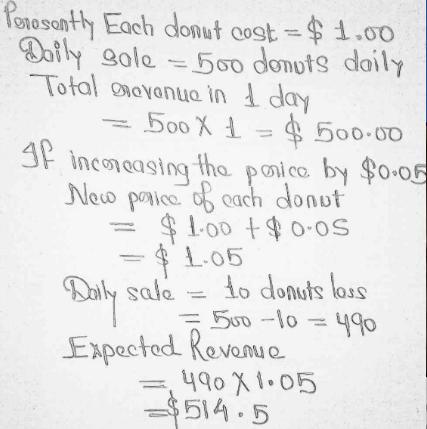 Presently Each donut cost = $ 1.00
Daily sale = 500 donuts daily
Total revenue in 1 day
= 500 X 1 = $ 500.00
If increasing the price by $0.05
New price of each donut
= $ 1.00 + $ 0.05
= $ 1.05
Daily sale = 10 donuts less
= 500 - 10 = 490
Expected Revenue
= 490 X 1.05
= $514.5